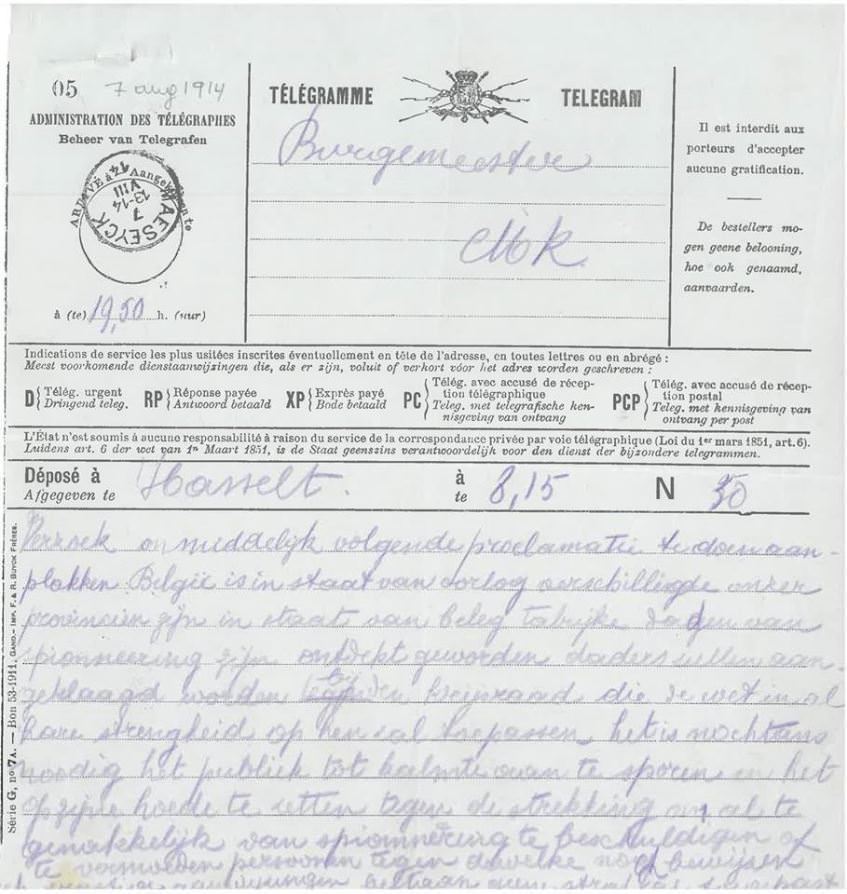 05 7 aug 1914
ADMINISTRATION DES TÉLÉGRAPHES
Beheer van Telegrafen
ARRIVÉ à Aangekomen te
MAESEYCK
7
13-14
VIII
14
à (te) 19,50 h. (uur)
TÉLÉGRAMME TELEGRAM
Burgemeester
Il est interdit aux
porteurs d'accepter
aucune gratification.
De bestellers mo-
gen geene belooning,
hoe ook genaamd,
aanvaarden.
Indications de service les plus usitées inscrites éventuellement en tête de l'adresse, en toutes lettres ou en abrégé :
Meest voorkomende dienstaanwijzingen die, als er zijn, voluit of verkort vóor het adres worden geschreven :
D Télég. urgent
Dringend teleg.
RP Réponse payée
Antwoord betaald
XP Exprès payé
Bode betaald
PC Télég. avec accusé de récep-
tion télégraphique
Teleg. met telegrafische ken-
nisgeving van ontvang
PCP Télég. avec accusé de récep-
tion postal
Teleg. met kennisgeving van
ontvang per post
L'État n'est soumis à aucune responsabilité à raison du service de la correspondance privée par voie télégraphique (Loi du 1er mars 1851, art. 6).
Luidens art. 6 der wet van 1n Maart 1851, is de Staat geenszins verantwoordelijk voor den dienst der bijzondere telegrammen.
Déposé à Hasselt. à 8,15 N 30
Afgegeven te te
Verzoek onmiddelyk volgende proclamatie te doen aan-
plakken België is in staat van oorlog verschillige onzer
provincien zijn in staat van beleg talrijke daden van
spionneering zijn ontdekt geworden daders zullen aan-
geklaagd worden bij den krijgsraad die de wet in al
hare strengheid op hen zal toepassen het is nochtans
noodig het publiek tot kalmte aan te sporen en het
op zijne hoede te zetten tegen de strekking om al te
gemakkelijk van spionneering te beschuldigen of
te vermoeden personen tegen dewelke noch bewijzen
aanwijzingen bestaan
Série G, n° 7A. — Bon 53-1911. GAND.- IMP. F. & R. BUYCK FRÈRES.